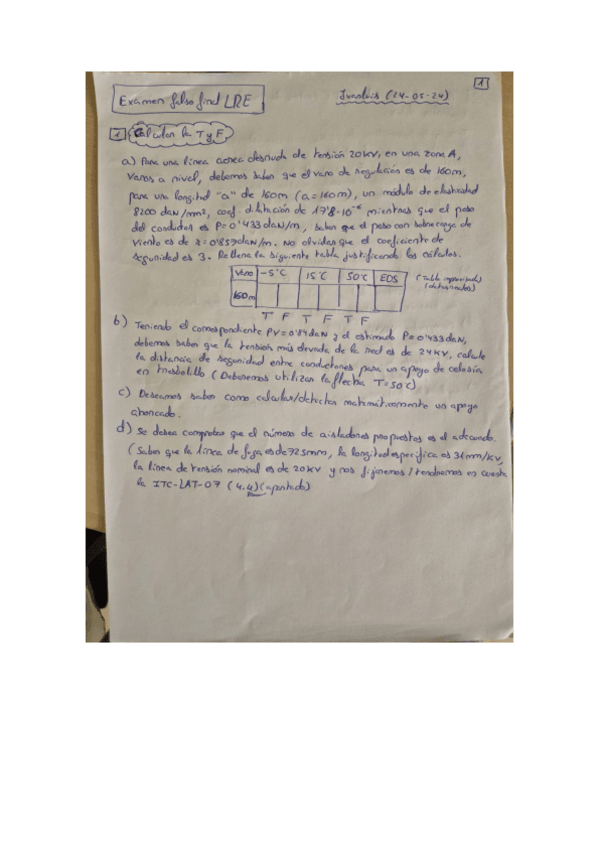 1
Examen falso final LRE
Juanluis (24-05-24)
1 Calcular la T y F
a) Para una línea aerea desnuda de tensión 20kV, en una zona A,
vanos a nivel, debemos saber que el vano de regulación es de 160m,
para una longitud "a" de 160m (a=160m), un módulo de elasticidad
8200 daN/mm², coef. dilatación de 17'8·10⁻⁶ mientras que el peso
del conductor es P=0'433daN/m, saber que el peso con sobrecarga de
viento es de z=0'859daN/m. No olvidar que el coeficiente de
seguridad es 3. Rellena la siguiente tabla justificando los cálculos.
Vano -5°C 15°C 50°C EDS (Tabla
160m
T F T F T F
b) Teniendo el correspondiente PV=0'84daN y el estimado P=0'433daN,
debemos saber que la tensión más elevada de la red es de 24KV, calcule
la distancia de seguridad entre conductores para un apoyo de celosía
en tresbolillo (Deberemos utilizar la flecha T=50°C)
c) Deseamos saber como calcular/detectar matemáticamente un apoyo
ahorcado.
d) Se desea comprobar que el número de aisladores propuestos es el adecuado.
(Saber que la línea de fuga es de 725mm, la longitud especifica es 31mm/KV,
la línea de tensión nominal es de 20KV y nos fijaremos/tendremos en cuenta
la ITC-LAT-07 (4.4)(apartado)